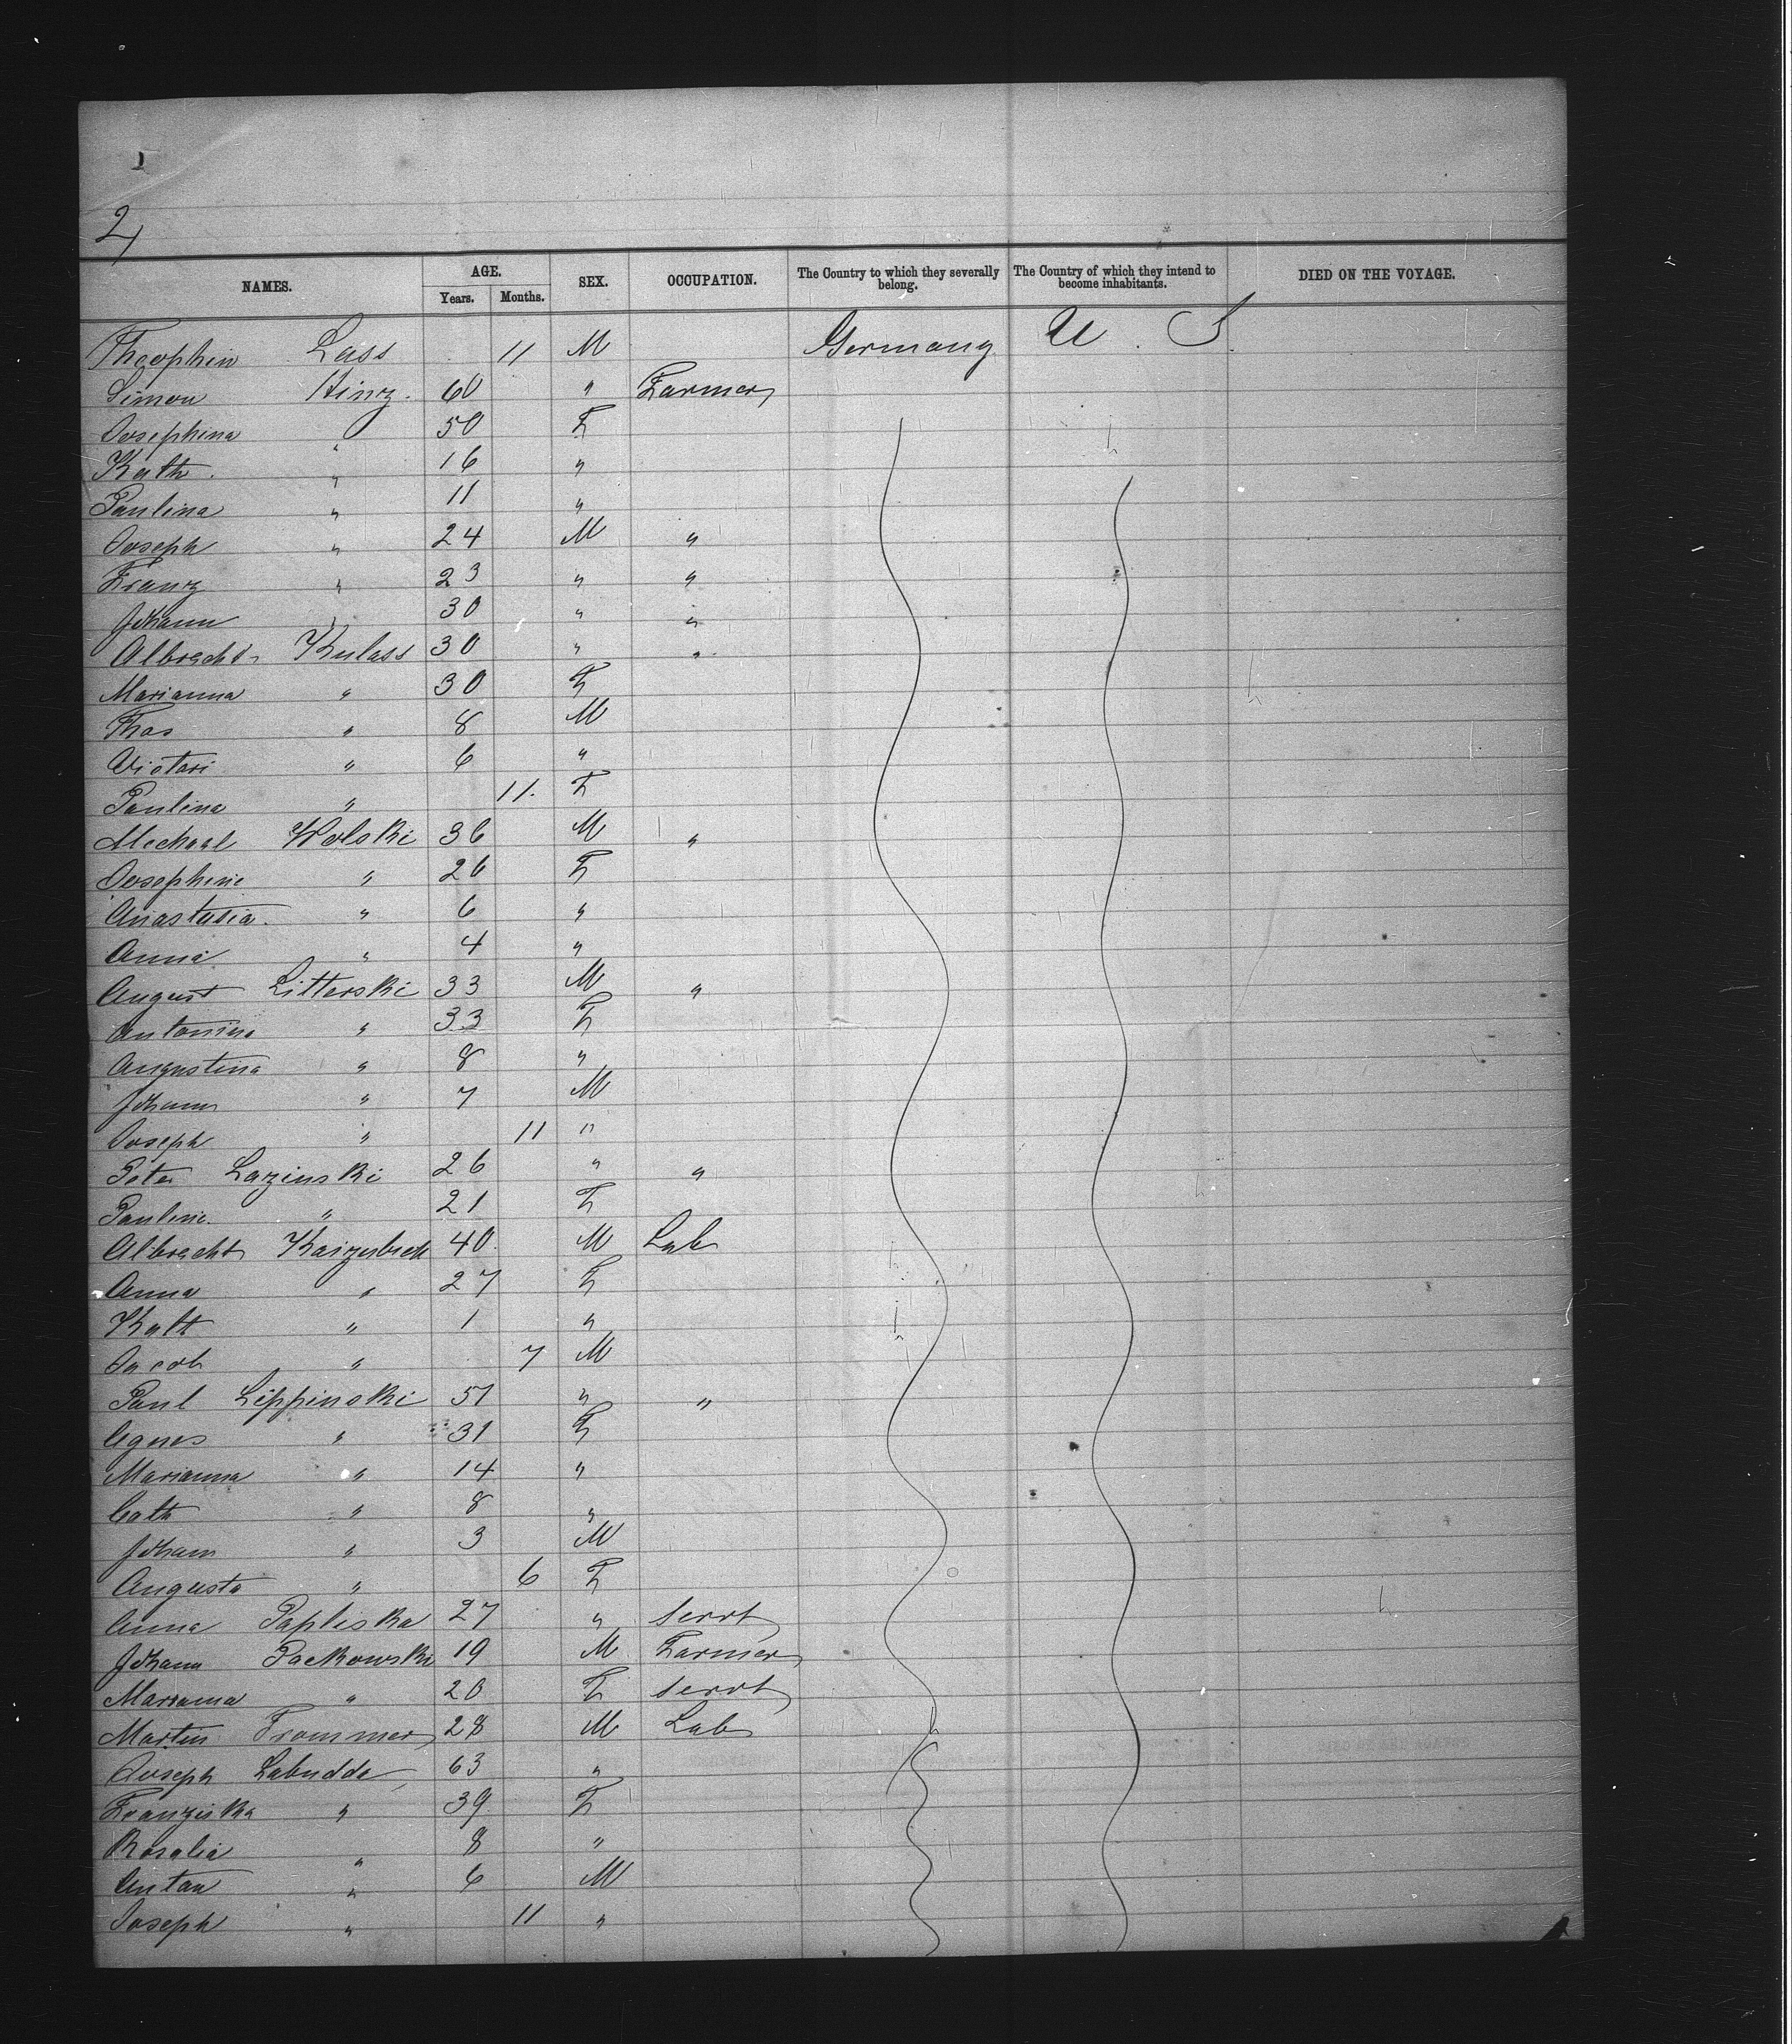 2,
NAMES. AGE. Years. Months. SEX. OCCUPATION. The Country to which they severally belong. The Country of which they intend to become inhabitants. DIED ON THE VOYAGE.
Theophin Lass 11 M Germany U. S.
Simon Hinz. 60 " Farmer
Josephina " 50 F
Kath. " 16 "
Paulina " 11 "
Joseph " 24 M "
Franz " 23 " "
Johann " 30 " "
Albrecht Kulass 30 " "
Marianna " 30 F
Thos " 8 M
Victori " 6 "
Paulina " 11. F
Mechael Wolski 36 M "
Josephine " 26 F
Anastasia. " 6 "
Anna " 4 "
August Litterski 33 M "
Antonina " 33 F
Augustina " 8 "
Johann " 7 M
Joseph " 11 "
Peter Lazinski 26 " "
Pauline. " 21 F
Albrecht 40 M Lab
Anna " 27 F
Kath " 1 "
Jacob " 7 M
Paul Lippinski 51 " "
Agnes " 31 F
Marianna " 14 "
Cath " 8 "
Johann " 3 M
Augusta " 6 F
Anna Papleska 27 " Servt
Johann Packowski 19 M Farmer
Marianna " 20 F Servt
Martin Trommer 28 M Lab
Joseph Labudda 63 "
Franziska " 39 F
Rosalia " 8 "
Anton " 6 M
Joseph " 11 "